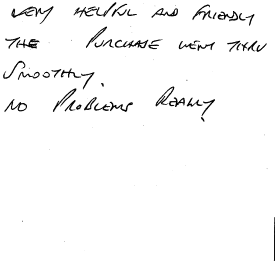 VERY HELPFUL AND FRIENDLY
THE PURCHASE WENT THRU
SMOOTHLY.
NO PROBLEMS REALLY.